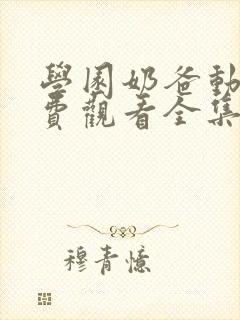 學園奶爸動
費觀看全集
穆青憶